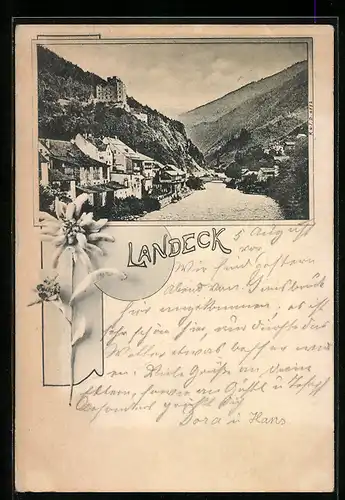 LANDECK
5 Aug
Wir sind gestern
Abend von Innsbruck
hier angekommen. es ist
sehr schön hier, nur dürfte das
Wetter etwas besser werd
en. Viele Grüße an deine
Eltern, sowie an
Besonders grüßt Dich
Dora u Hans